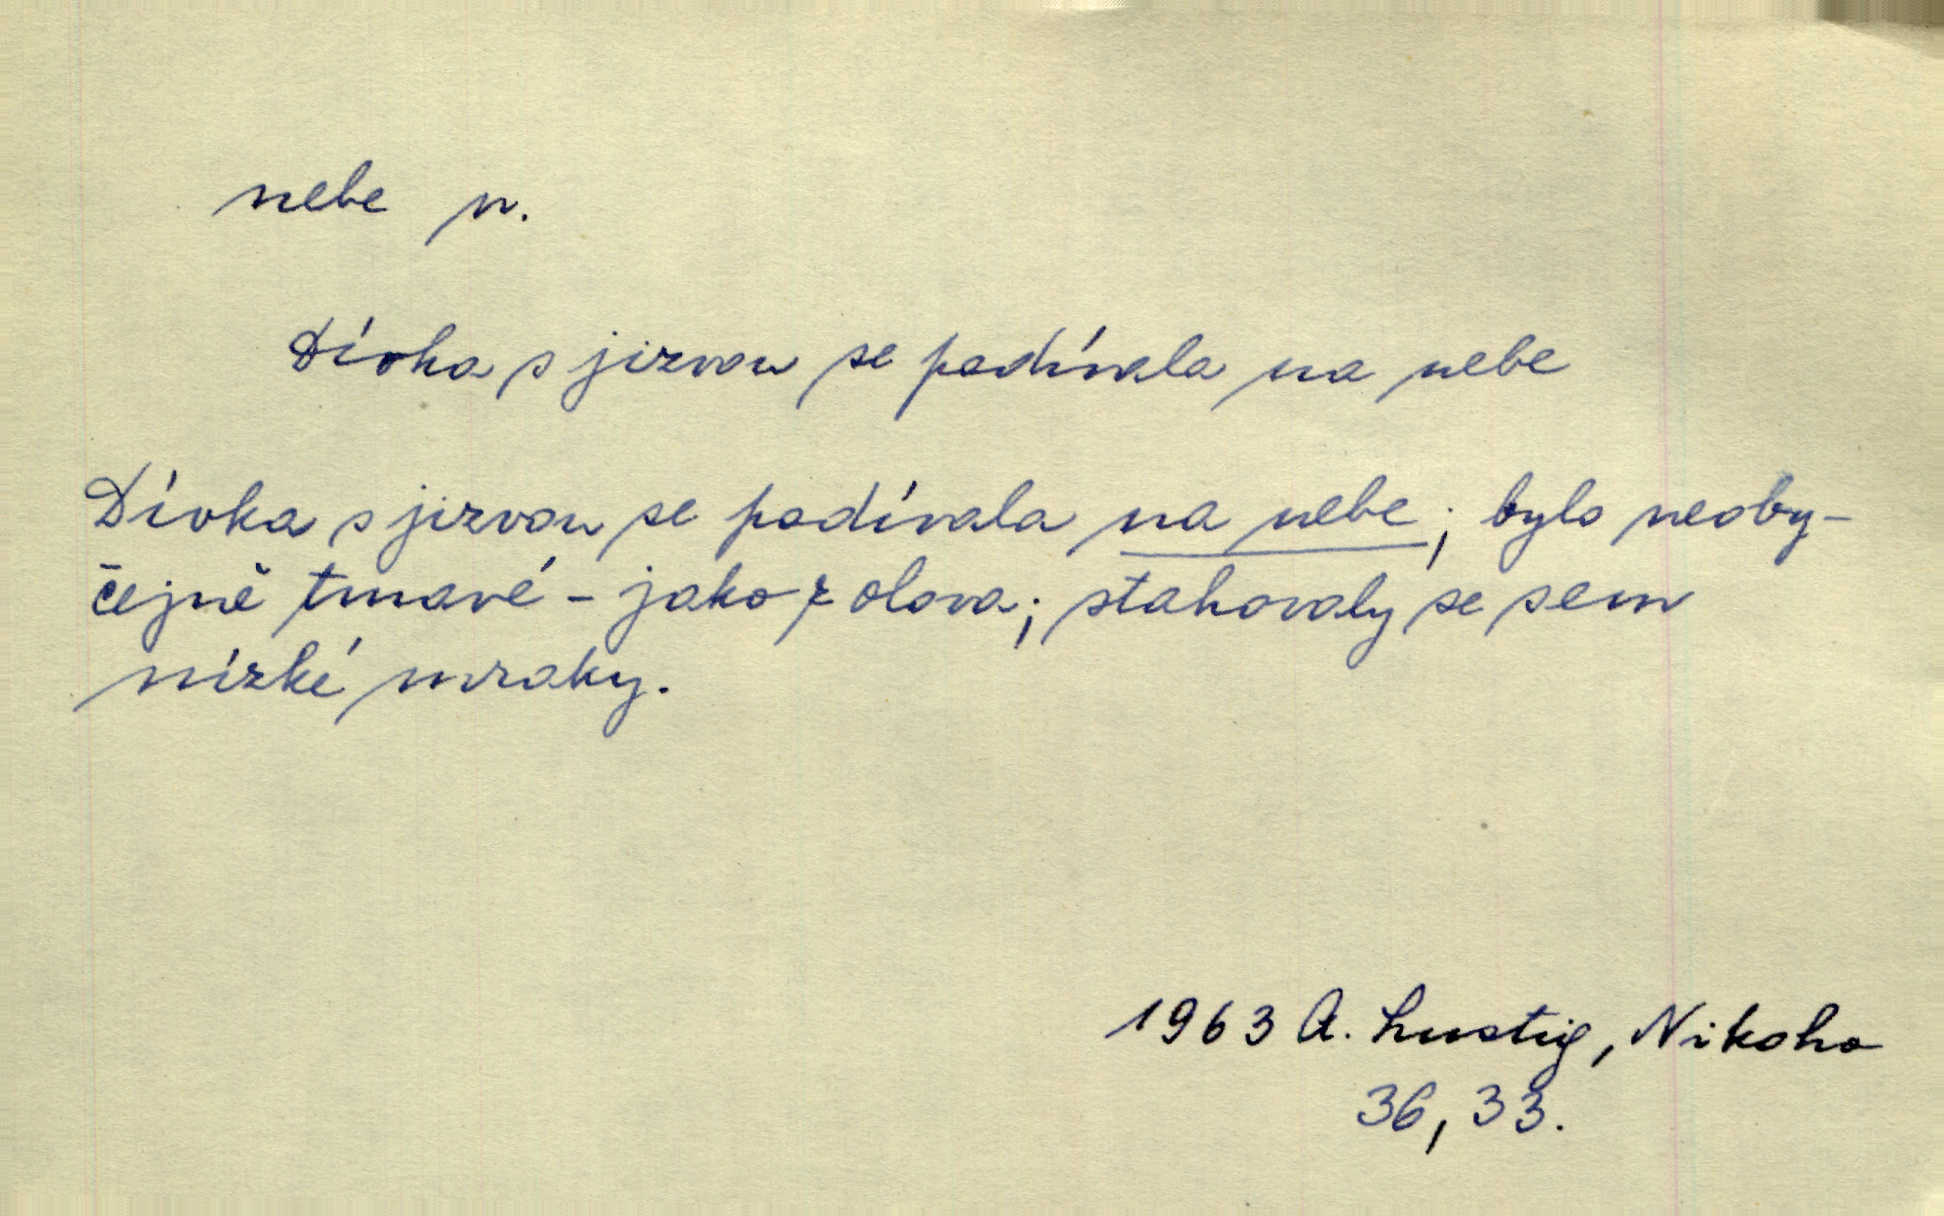 nebe n.
Dívka s jizvou se podívala na nebe
Dívka s jizvou se podívala na nebe; bylo neoby-
čejně tmavé - jako z olova; stahovaly se sem
nízké mraky.
1963 A. Lustig, Nikoho
36, 33.